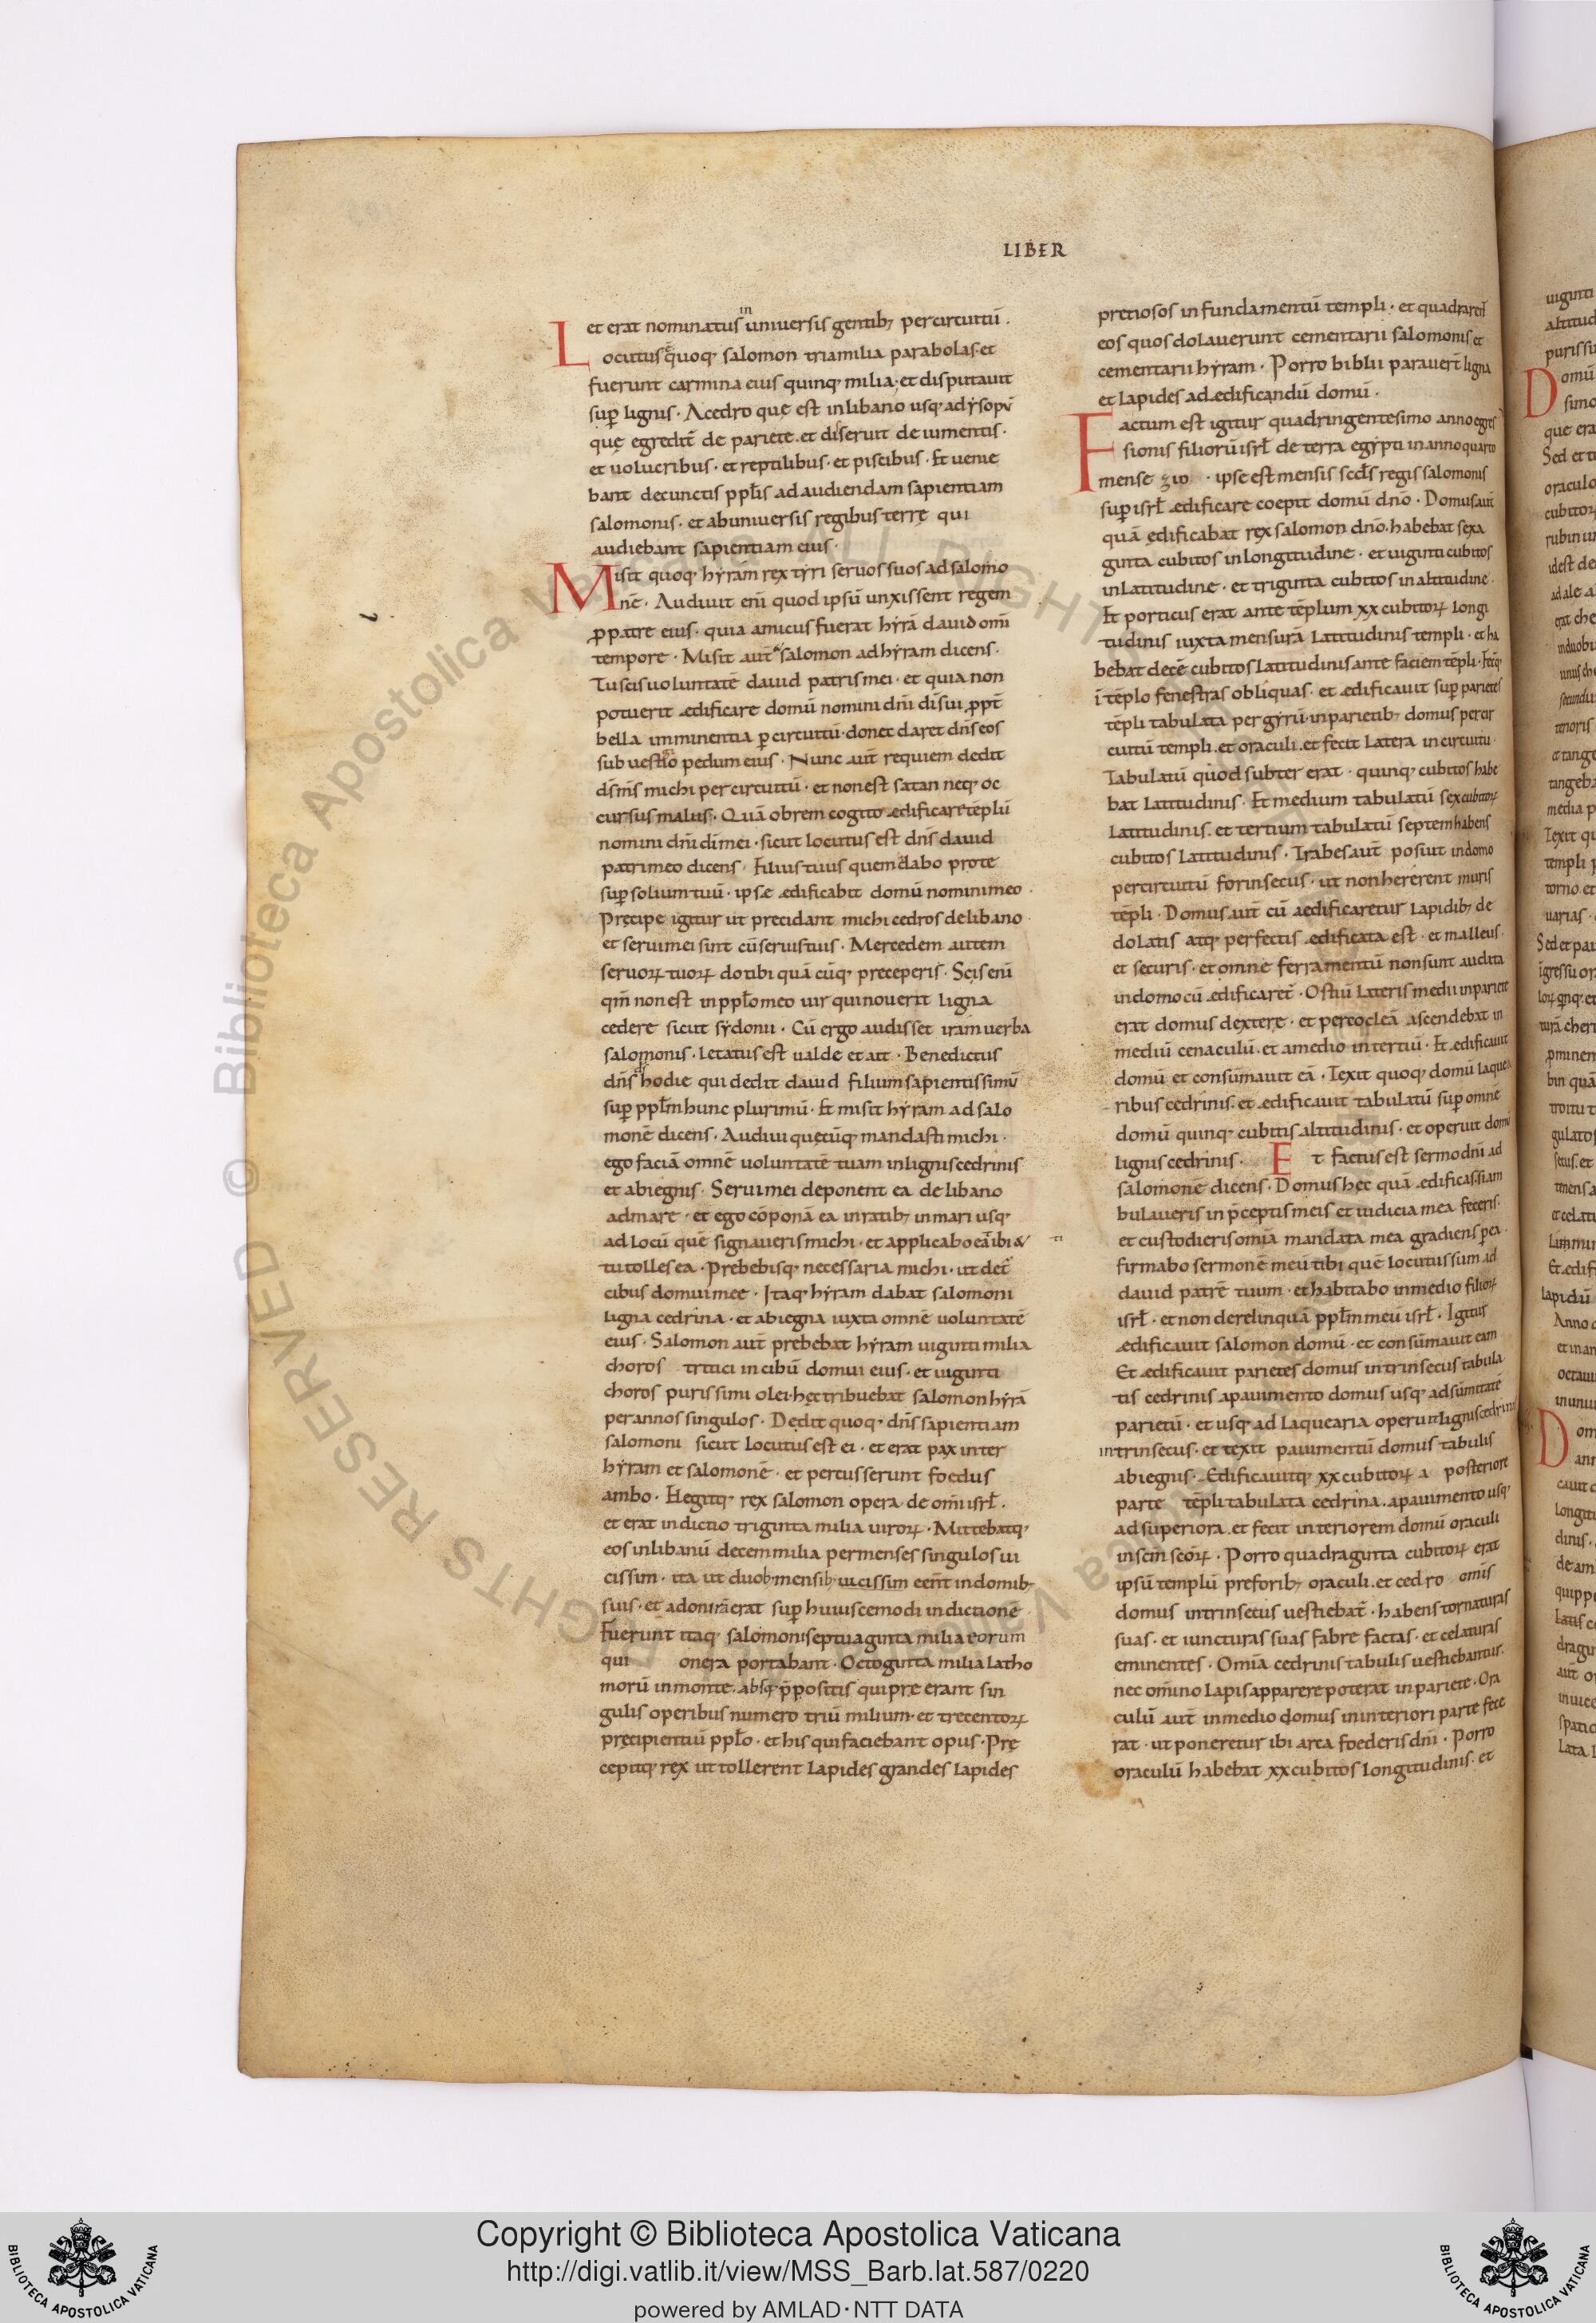 LIBER
et erat nominatus in uniuersis gentib; percircuitū.
Locutus ē quoq; salomon triamilia parabolas. et
fuerunt carmina eius quinq; milia. et disputauit
sup lignis. Acedro quę est inlibano usq; adysopū
quę egredit̄ de pariete. et diseruit de iumentis.
et uolucribus. et reptilibus. et piscibus. Et uenie
bant decunctis pplis adaudiendam sapientiam
salomonis. et abuniuersis regibus terrę qui
audiebant sapientiam eius.
Misit quoq; hyram rex tyri seruos suos adsalomo
nē. Audiuit eni quod ipsū unxissent regem
ppatre eius. quia amicus fuerat hyrā dauid omi
tempore. Misit aut salomon adhyram dicens.
Tuscisuoluntatē dauid patrismei. et quia non
potuerit ædificare domū nomini dni disui ppt
bella imminentia p circuitū. donec daret dns eos
sub uestigio pedum eius. Nunc aut requiem dedit
ds ms michi percircuitū. et nonest satan neq; oc
cursus malus. Quā obrem cogito ædificare templū
nomini dni di mei. sicut locutus est dns dauid
patrimeo dicens. Filius tuus quem dabo prote
sup solium tuū. ipse ædificabit domū nominimeo.
Pręcipe igitur ut precidant michi cedros delibano.
et seruimei sint cū seruistuis. Mercedem autem
seruoꝝ tuoꝝ dotibi quā cūq; preceperis. Scis eni
qm non est inpplo meo uir quinouerit ligna
cedere sicut sydonii. Cū ergo audisset iram uerba
salomonis. letatus est ualde et ait. Benedictus
dns ds hodie qui dedit dauid filium sapientissimū
sup pplm hunc plurimū. Et misit hyram ad salo
monē dicens. Audiui quęcūq; mandasti michi.
ego faciā omnē uoluntatē tuam inlignis cedrinis
et abiegnis. Seruimei deponent ea delibano
admare. et ego cōponā ea inratib; inmari usq;
ad locū quē signaueris michi. et applicabo ea ibi &
tu tolles ea. Prebebisq; necessaria michi. ut det̄
cibus domuimee. Itaq; hyram dabat salomoni
ligna cedrina. et abiegna iuxta omnē uoluntatē
eius. Salomon aut prebebat hyram uiginti milia
choros tritici in cibū domui eius. et uiginti
choros purissimi olei. hęc tribuebat salomon hyrā
perannos singulos. Dedit quoq; dns sapientiam
salomoni sicut locutus est ei. et erat pax inter
hyram et salomonē. et percusserunt foedus
ambo. Elegitq; rex salomon opera de omi isrl.
et erat indictio triginta milia uiroꝝ. Mittebatq;
eos inlibanū decem milia permenses singulos ui
cissim. ita ut duob; mensib; uicissim eent in domib;
suis. et adoniram erat sup huiuscemodi indictionē
Fuerunt itaq; salomoni septuaginta milia eorum
qui onera portabant. Octoginta milia latho
morū inmonte. absq; ppositis qui pre erant sin
gulis operibus numero triū milium. et trecentoꝝ
pręcipientiū pplo. et his qui faciebant opus. Prę
cepitq; rex ut tollerent lapides grandes lapides
pretiosos in fundamentū templi. et quadrarent
eos quos dolauerunt cementarii salomonis et
cementarii hyram. Porro biblii parauert ligna
et lapides adædificandū domū.
Factum est igitur quadringentesimo anno egres
sionis filiorū isrl de terra egypti in anno quarto
mense zio. ipse est mensis scds regis salomonis
sup isrl ædificare coepit domū dno. Domus aut
quā ędificabat rex salomon dno. habebat sexa
ginta cubitos in longitudine. et uiginti cubitos
inlatitudine. et triginta cubitos in altitudine.
Et porticus erat ante tēplum xx cubitoꝝ longi
tudinis iuxta mensurā latitudinis templi. et ha
bebat decē cubitos latitudinis ante faciem tēpli. Fecitq;
ī tēplo fenestras obliquas. et ædificauit sup parietes
tēpli tabulata per gyrū. inparietib; domus percir
cuitū templi. et oraculi. et fecit latera in circuitu.
Tabulatū quod subter erat. quinq; cubitos habe
bat latitudinis. Et medium tabulatū sex cubitoꝝ
latitudinis. et tertium tabulatū septem habens
cubitos latitudinis. Trabes aut posuit in domo
percircuitū forinsecus. ut non hererent muris
tēpli. Domus aut cū aedificaretur lapidib; de
dolatis atq; perfectis ædificata est. et malleus.
et securis. et omne ferramentū non sunt audita
in domo cū ædificaret̄. Ostiū lateris medii inpariete
erat domus dextere. et percocleā ascendebat in
mediū cenaculū. et amedio intertiū. Et ædificauit
domū et consūmauit eā. Texit quoq; domū laquea
ribus cedrinis. et ædificauit tabulatū sup omnē
domū quinq; cubitis altitudinis. et operuit domū
lignis cedrinis. Et factus est sermo dni ad
salomonē dicens. Domus hęc quā ædificas. si am
bulaueris in pceptis meis et iudicia mea feceris.
et custodieris omia mandata mea gradiens p ea.
firmabo sermonē meū tibi quē locutus sum ad
dauid patrē tuum. et habitabo inmedio filioꝝ
isrl. et non derelinquā pplm meū isrl. Igitur
ædificauit salomon domū. et consūmauit eam
Et ædificauit parietes domus intrinsecus tabula
tis cedrinis apauimento domus usq; adsūmitatē
parietū. et usq; ad laquearia operuit lignis cedrinis
intrinsecus. et texit pauimentū domus tabulis
abiegnis. Ædificauitq; xx cubitoꝝ a posteriore
parte tēpli tabulata cedrina. apauimento usq;
ad superiora. et fecit interiorem domū oraculi
in scm scoꝝ. Porro quadraginta cubitoꝝ erat
ipsū templū preforib; oraculi. et cedro omis
domus intrinsecus uestiebat̄. habens tornaturas
suas. et iuncturas suas fabre factas. et celaturas
eminentes. Omia cedrinis tabulis uestiebantur.
nec omino lapis apparere poterat inpariete. Ora
culū aut inmedio domus ininteriori parte fece
rat. ut poneretur ibi arca foederis dni. Porro
oraculū habebat xx cubitos longitudinis. et
Copyright © Biblioteca Apostolica Vaticana
http://digi.vatlib.it/view/MSS_Barb.lat.587/0220
powered by AMLAD·NTT DATA